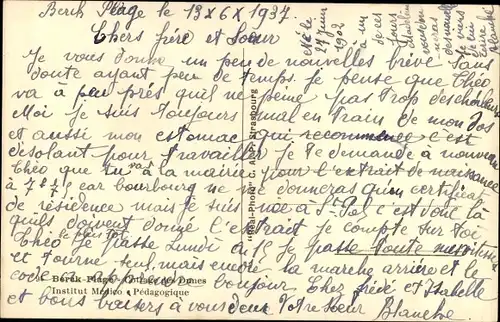 Berck Plage le 13x6x1937
Chers frère et Sœur
Née le
27 juin
1902
Je vous donne un peu de nouvelles brève sans
doute ayant peu de temps. je pense que Théo
va à peu près quil ne peine pas trop
Moi je suis toujours mal en train de mon dos
et aussi mon estomac qui recommence c'est
désolant pour travailler Je te demande à nouveau
Théo que tu va à la mairie pour l'extrait de naissance
à 7 h ½ car bourbourg ne me donneras qu'un certificat
de résidence mais je suis née à St Pol c'est donc là
quils doivent donné l'extrait je compte sur toi
Théo je passe Lundi au 15 je passe toute
et tourne seul mais encore la marche arrière et le
bonjour Cher frère et Isabelle
et bons baisers à vous deux Votre Sœur Blanche
Berck-Plage - des Dunes
Institut Médico-Pédagogique
Strasbourg